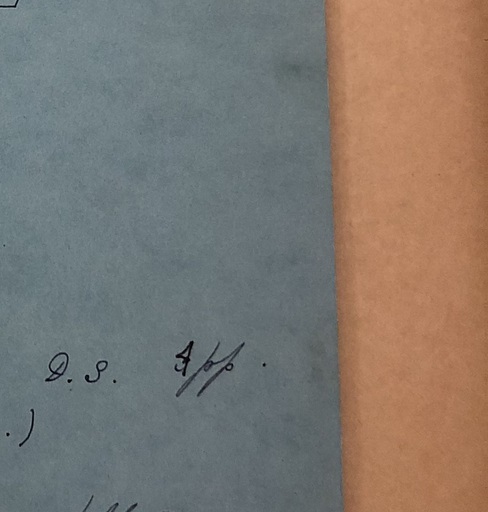 D. S. 4pp.
.)